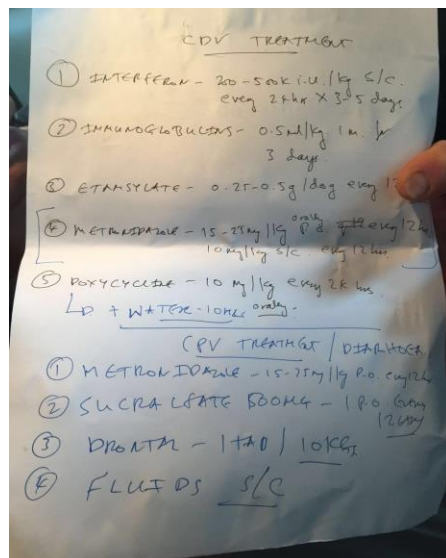 CDV TREATMENT
① INTERFERON - 200-500K i.u./kg S/C.
every 24hrs X 3-5 days
② IMMUNOGLOBULINS - 0.5ml/kg 1m. for
3 days.
③ ETAMSYLATE - 0.25-0.5g/dog every 12
④ METRONIDAZOLE - 15-25mg/kg orally P.O. every 12hrs
10mg/kg S/C. every 12hrs.
⑤ DOXYCYCLINE - 10 mg/kg every 24 hrs.
+ WATER - 10ML orally.
CPV TREATMENT / DIARHOEA
① METRONIDAZOLE - 15-25mg/kg P.O. every 12hrs
② SUCRALFATE 500MG - 1 P.O. Every
12
③ DRONTAL - 1 TAB / 10KGS
④ FLUIDS S/C